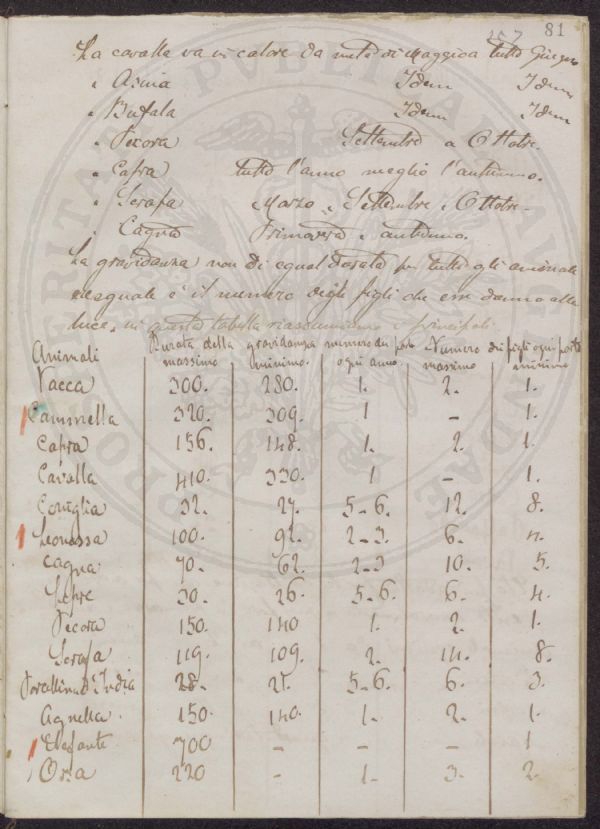 157 81
La cavalla va in calore da metà di Maggio a tutto Giugno
" Asina Idem Idem
" Bufala Idem Idem
" Pecora Settembre a Ottobre.
" Capra tutto l'anno meglio l'autunno.
" Scrofa Marzo, Settembre e Ottobre.
" Cagna Primavera e autunno.
La gravidanza non di egual durata per tutti gli animali
ineguale è il numero degli figli che essi danno alla
luce. in questa tabella riassumiamo i principali.
Animali Durata della gravidanza numero dei parti Numero dei figli ogni parto
massimo minimo. ogni anno. massimo minimo
Vacca 300. 280. 1. 2. 1.
Cammella 320. 309. 1 - 1.
Capra 156. 148. 1. 2. 1.
Cavalla 410. 330. 1 - 1.
Coniglia 32. 27. 5-6. 12. 8.
Leonessa 100. 92. 2-3. 6. 4.
Cagna 70. 62. 2-3 10. 5.
Lepre 30. 26. 5-6. 6. 4.
Pecora 150. 140 1. 2. 1.
Scrofa 119. 109. 2. 14. 8.
Porcellino d'India 28. 21. 5-6. 6. 3.
Agnella. 150. 140. 1. 2. 1.
Elefante 700 - - - 1
Orsa 220 - 1. 3. 2.
PROSPERITATI PVBLICAE AVGENDAE